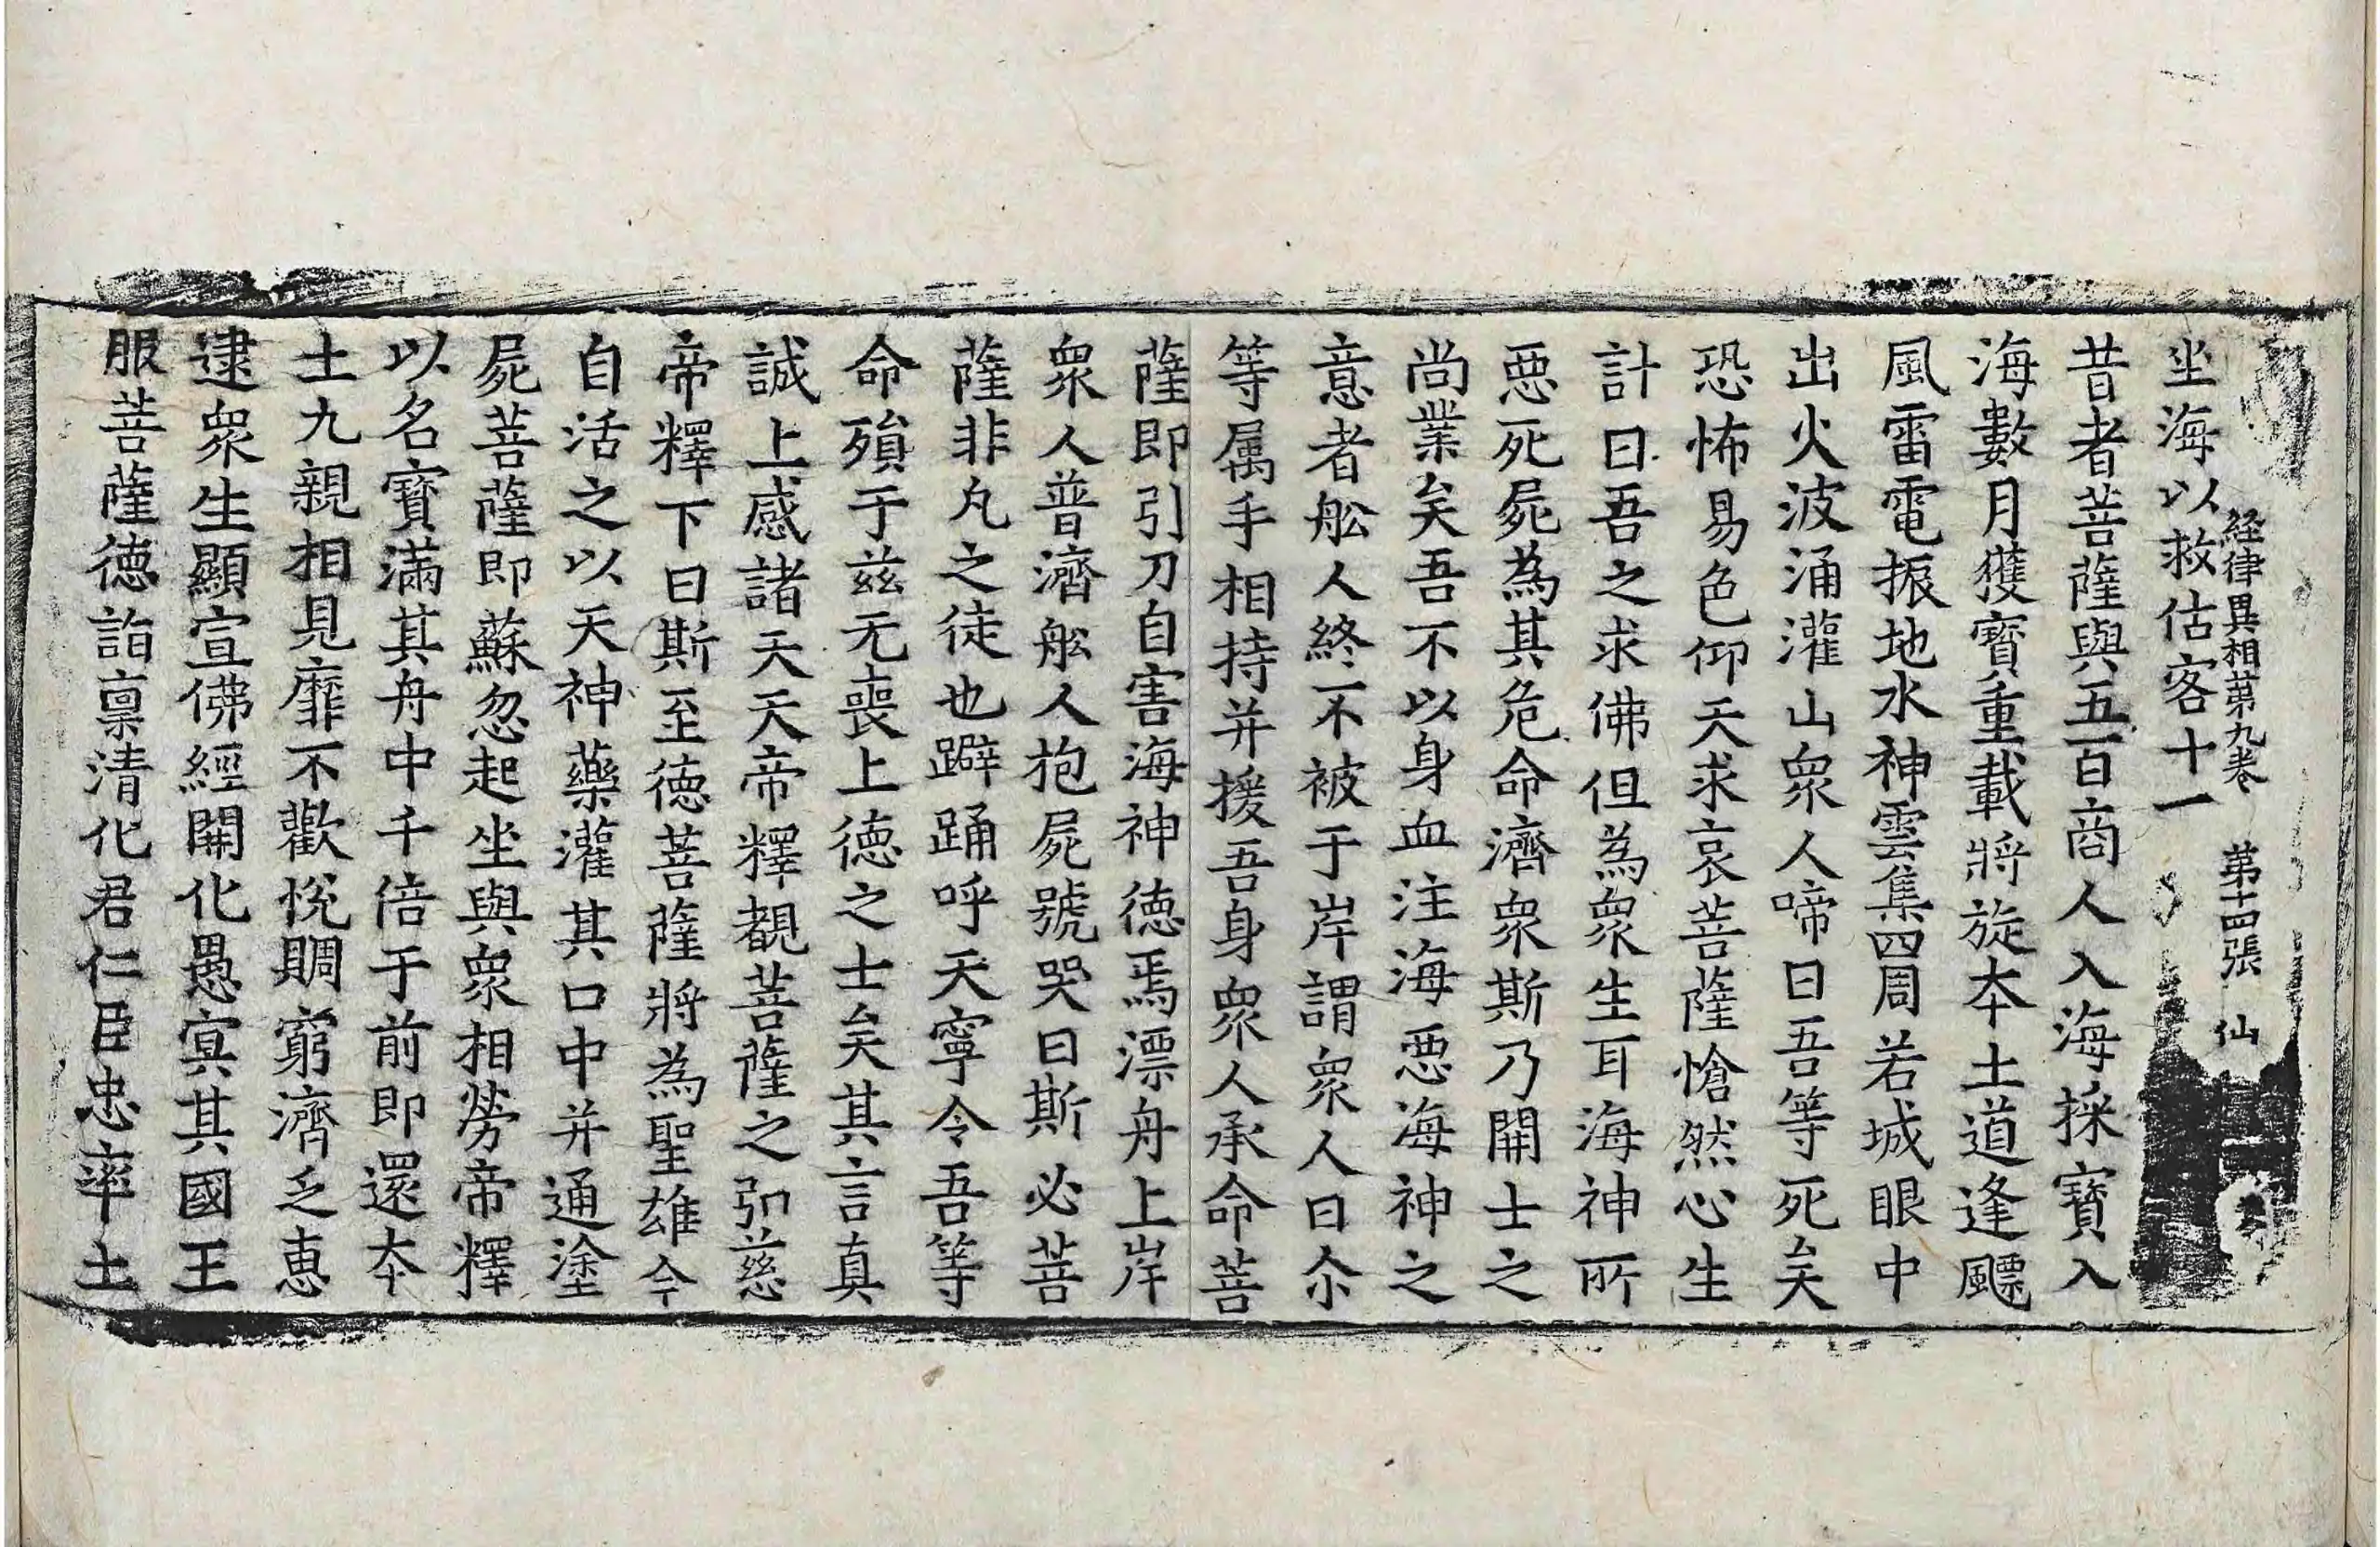 経律異相第九卷　第十四張　仙
坐海以救估客十一
昔者菩薩與五百商人入海採寶入
海數月獲寶重載將旋夲土道逢飃
風雷電振地水神雲集四周若城眼中
出火波涌灌山衆人啼曰吾等死矣
恐怖易色仰天求哀菩薩愴然心生
計曰吾之求佛但為衆生耳海神所
惡死屍為其危命濟衆斯乃開士之
尚業矣吾不以身血注海惡海神之
意者舩人終不被于岸謂衆人曰尒
等属手相持并援吾身衆人承命菩
薩即引刀自害海神徳焉漂舟上岸
衆人普濟舩人抱屍號哭曰斯必菩
薩非凡之徒也躃踊呼天寧令吾等
命殞于兹无喪上徳之士矣其言真
誠上感諸天天帝釋覩菩薩之弘慈
帝釋下曰斯至徳菩薩將為聖雄今
自活之以天神藥灌其口中并通塗
屍菩薩即蘇忽起坐與衆相勞帝釋
以名寶滿其舟中千倍于前即還夲
土九親相見靡不歡悅賙窮濟乏恵
逮衆生顯宣佛經開化愚冥其國王
服菩薩徳詣稟清化君仁臣忠率土